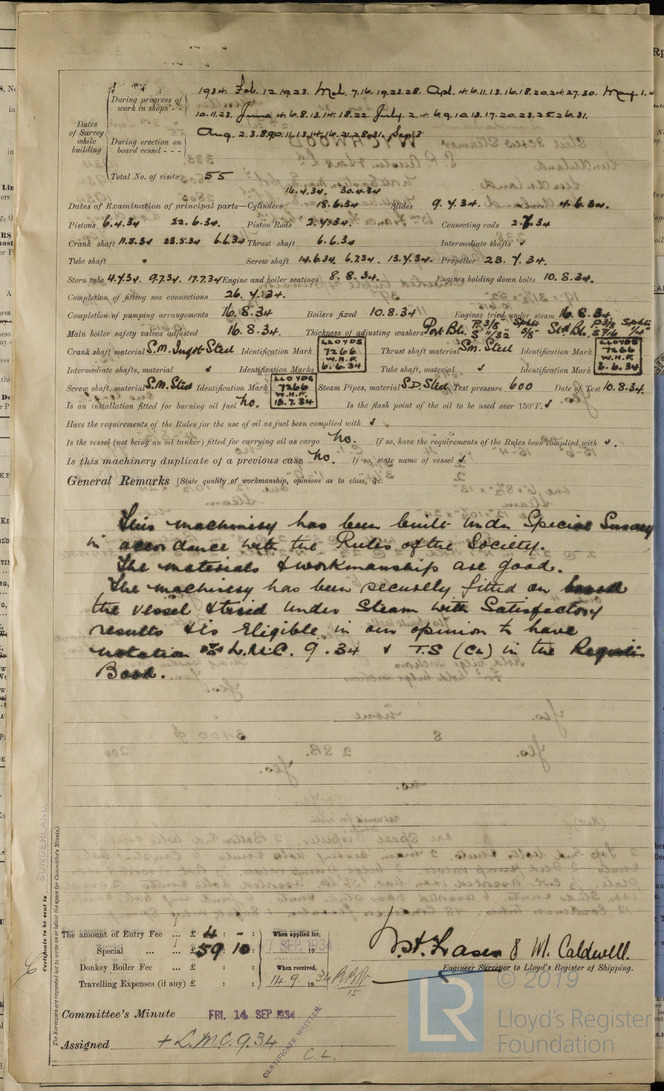 During progress of work in shops - - 1934. Feb. 12, 19, 23. Mch. 7. 16, 19, 23. 28. Apl. 4. 6. 11. 13. 16. 18. 20. 24. 27. 30. May. 1.
10. 11. 23. June 4. 6. 8. 13. 14. 18. 22 July. 2. 4. 6. 9. 10. 13. 17. 20. 23. 25. 26. 31.
Dates of Survey while building
During erection on board vessel - - - Aug. 2. 3. 8. 9. 10. 11. 13. 14. 16. 21. 28. 31. Sep. 3
Total No. of visits 55
16.4.34. 30.4.34
Dates of Examination of principal parts—Cylinders 18.6.34 Slides 9.4.34. 4.6.34.
Pistons 6.4.34 22.6.34. Piston Rods 2.7.34. Connecting rods
Crank shaft 11.5.34 28.5.34 6.6.34 Thrust shaft 6.6.34 Intermediate shafts ✓
Tube shaft Screw shaft 14.6.34 6.7.34. 13.7.34 Propeller 23.7.34.
Stern tube 4.7.34 9.7.34. 17.7.34 Engine and boiler seatings 8.8.34. Engines holding down bolts 10.8.34.
Completion of fitting sea connections 26.7.34.
Completion of pumping arrangements 16.8.34 Boilers fixed 10.8.34 Engines tried under steam 16.8.34.
Main boiler safety valves adjusted 16.8.34 Thickness of adjusting washers Port Blr.
Crank shaft material S.M. Ingot Steel Identification Mark LLOYDS 7266 W.H.F. 6.6.34 Thrust shaft material S.M. Steel Identification Mark LLOYDS 7266 W.H.F. 6.6.34
Intermediate shafts, material ✓ Identification Marks Tube shaft, material ✓ Identification Mark
Screw shaft, material S.M. Steel Identification Mark LLOYDS 7266 W.H.F. 13.7.34 Steam Pipes, material S.D. Steel Test pressure 600 Date of Test 10.8.34.
Is an installation fitted for burning oil fuel No. Is the flash point of the oil to be used over 150°F. ✓
Have the requirements of the Rules for the use of oil as fuel been complied with ✓
Is the vessel (not being an oil tanker) fitted for carrying oil as cargo No. If so, have the requirements of the Rules been complied with ✓.
Is this machinery duplicate of a previous case No. If so, state name of vessel ✓
General Remarks (State quality of workmanship, opinions as to class, &c.
This machinery has been built under Special Survey
in accordance with the Rules of the Society.
The materials & workmanship are good.
The machinery has been securely fitted on board
the vessel & tried under Steam with Satisfactory
results & is Eligible in our opinion to have
notation L.M.C. 9.34 & T.S (CL) in the Register
Book.
Certificate to be sent to SUNDERLAND
The Surveyors are requested not to write on or below the space for Committee's Minute.
The amount of Entry Fee ... £ 4 : - : When applied for,
Special ... ... £ 59 10 : 7 SEP 1934
Donkey Boiler Fee ... £ : : When received,
Travelling Expenses (if any) £ : : 14.9.1934
& W. Caldwell.
Engineer Surveyor to Lloyd's Register of Shipping.
Committee's Minute FRI. 14 SEP 1934
Assigned + L.M.C. 9.34
C.L.
CERTIFICATE WRITTEN.
© 2019
LR
Lloyd's Register
Foundation